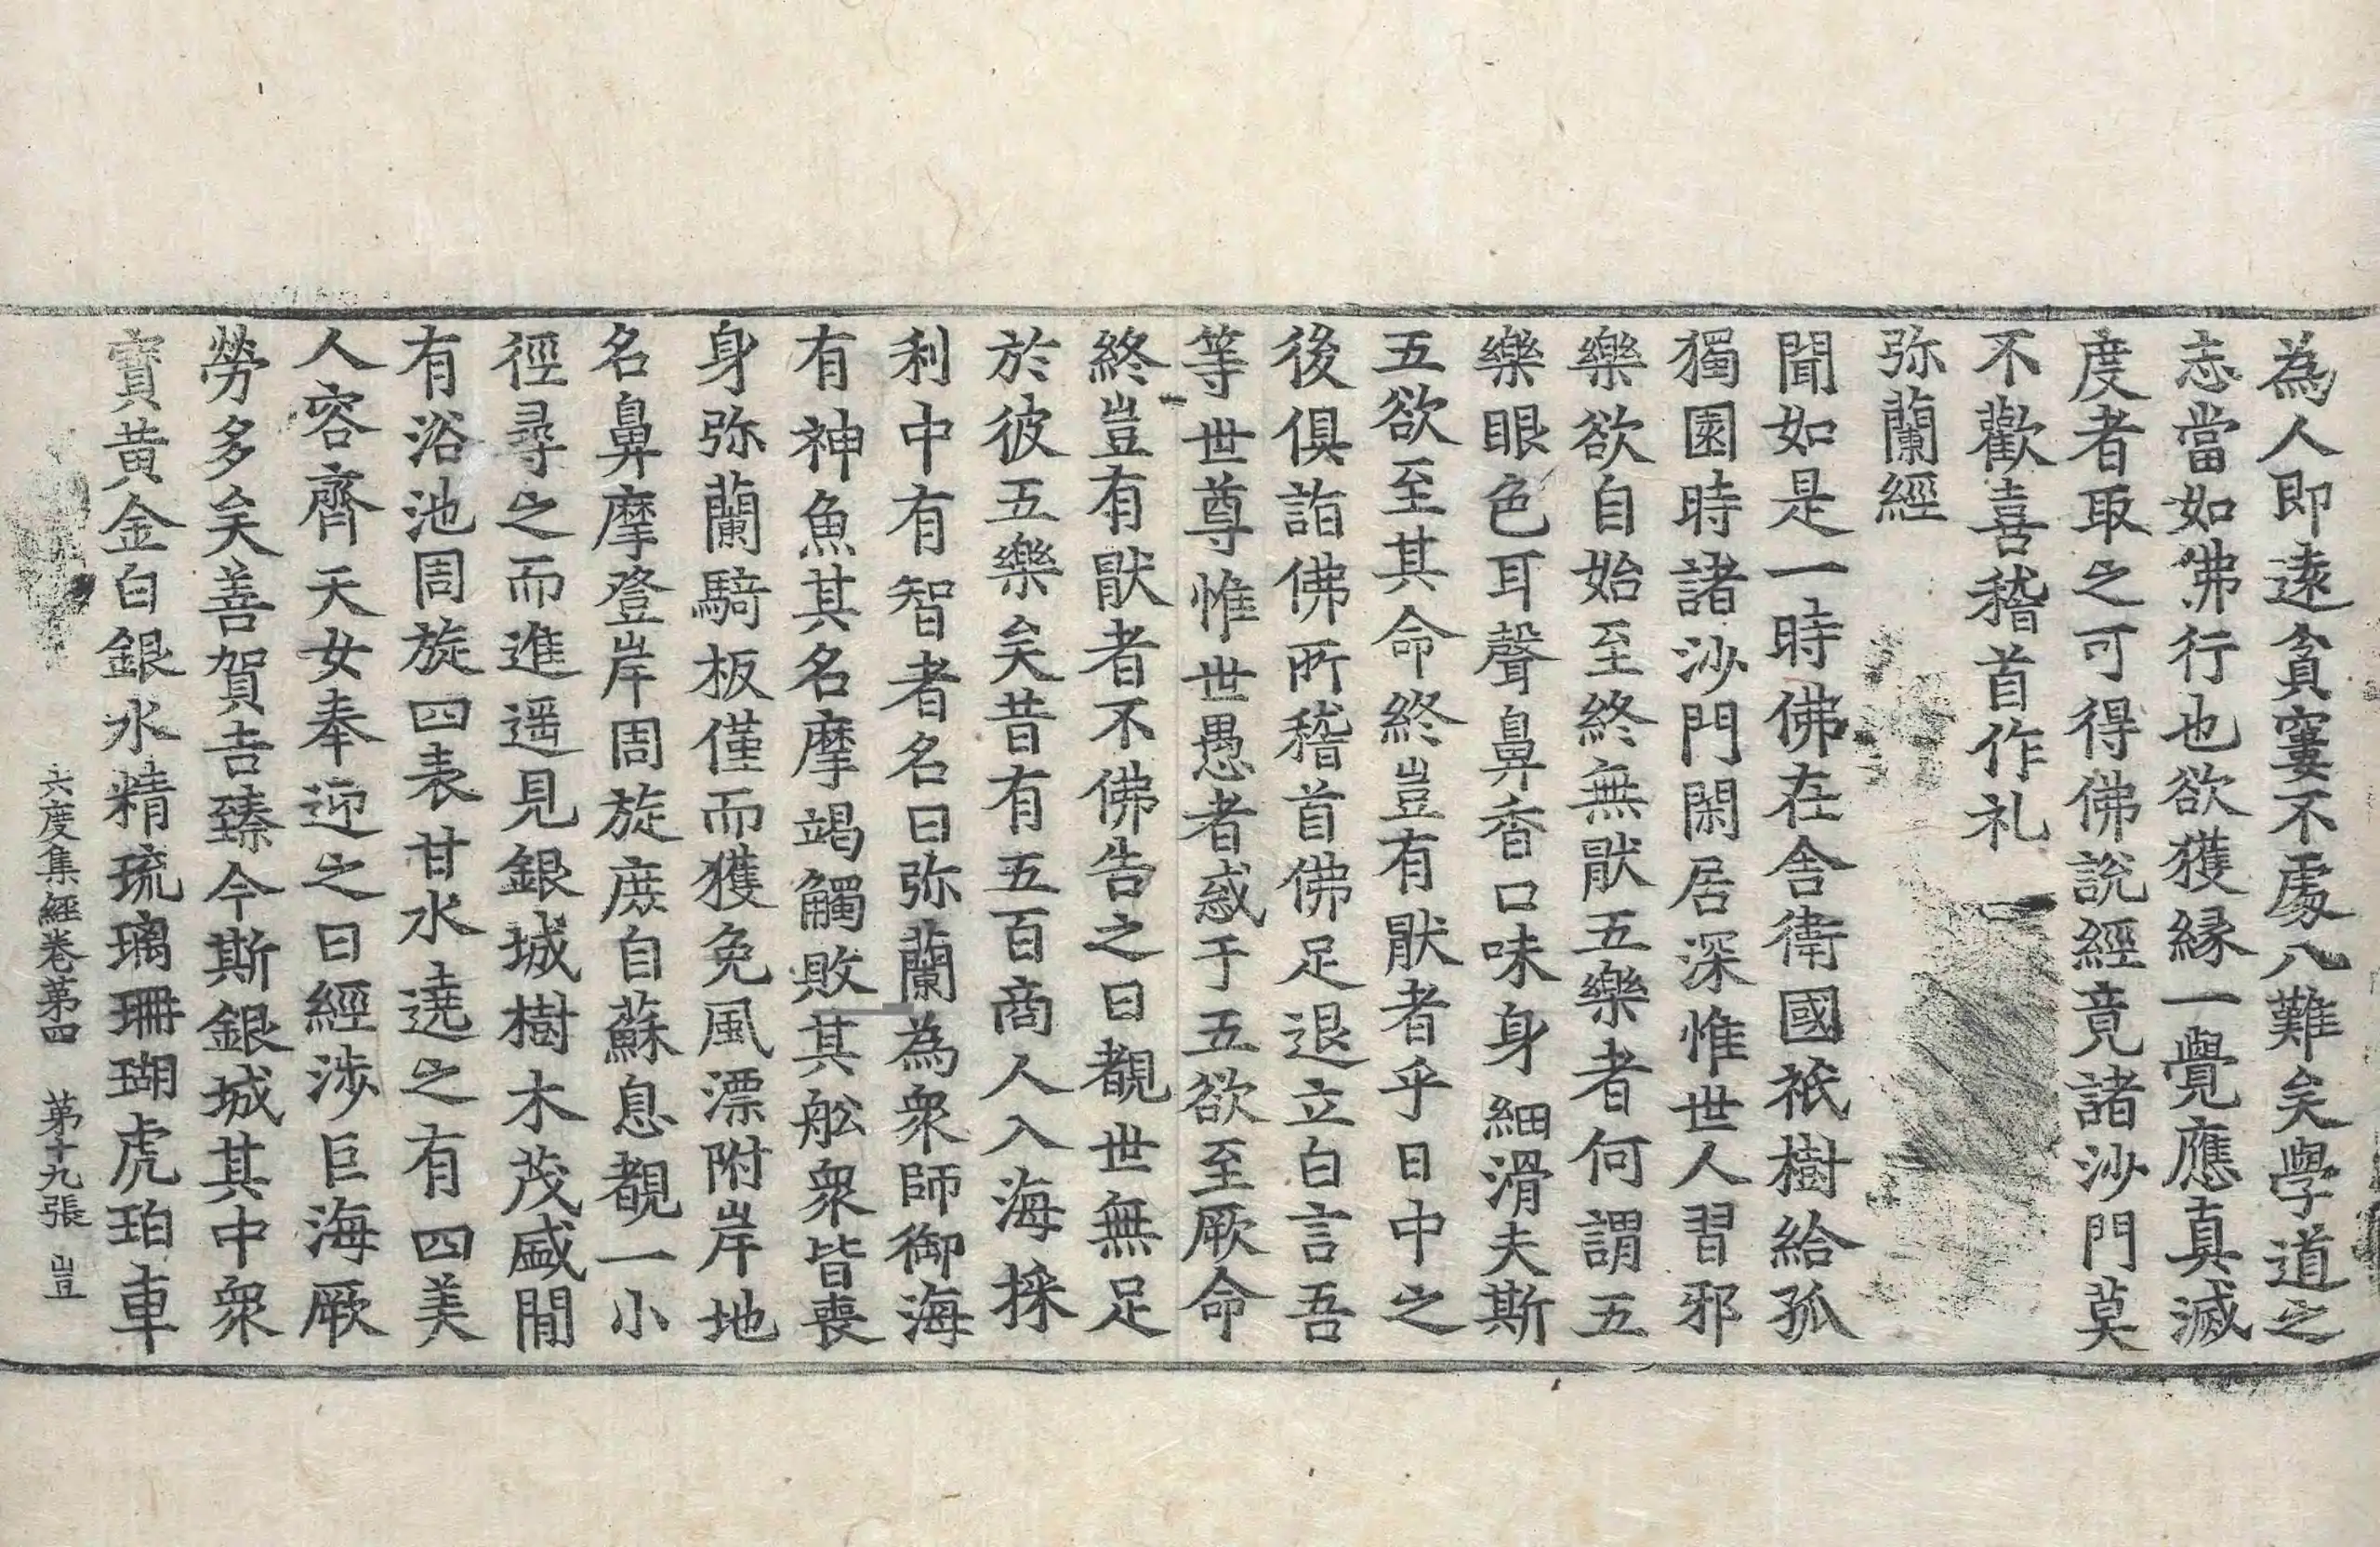 為人即遠貧窶不處八難矣學道之
志當如佛行也欲獲緣一覺應真滅
度者取之可得佛說經竟諸沙門莫
不歡喜稽首作礼
弥蘭經
聞如是一時佛在舍衛國祇樹給孤
獨園時諸沙門閑居深惟世人習邪
樂欲自始至終無猒五樂者何謂五
樂眼色耳聲鼻香口味身細滑夫斯
五欲至其命終豈有猒者乎日中之
後俱詣佛所稽首佛足退立白言吾
等世尊惟世愚者惑于五欲至厥命
終豈有猒者不佛告之曰覩世無足
於彼五樂矣昔有五百商人入海採
利中有智者名曰弥蘭為衆師御海
有神魚其名摩竭觸敗其舩衆皆喪
身弥蘭騎板僅而獲免風漂附岸地
名鼻摩登岸周旋庶自蘇息覩一小
徑尋之而進遥見銀城樹木茂盛間
有浴池周旋四表甘水遶之有四美
人容齊天女奉迎之曰經涉巨海厥
勞多矣善賀吉臻今斯銀城其中衆
寶黃金白銀水精琉璃珊瑚虎珀車
六度集經卷第四 第十九張 豈